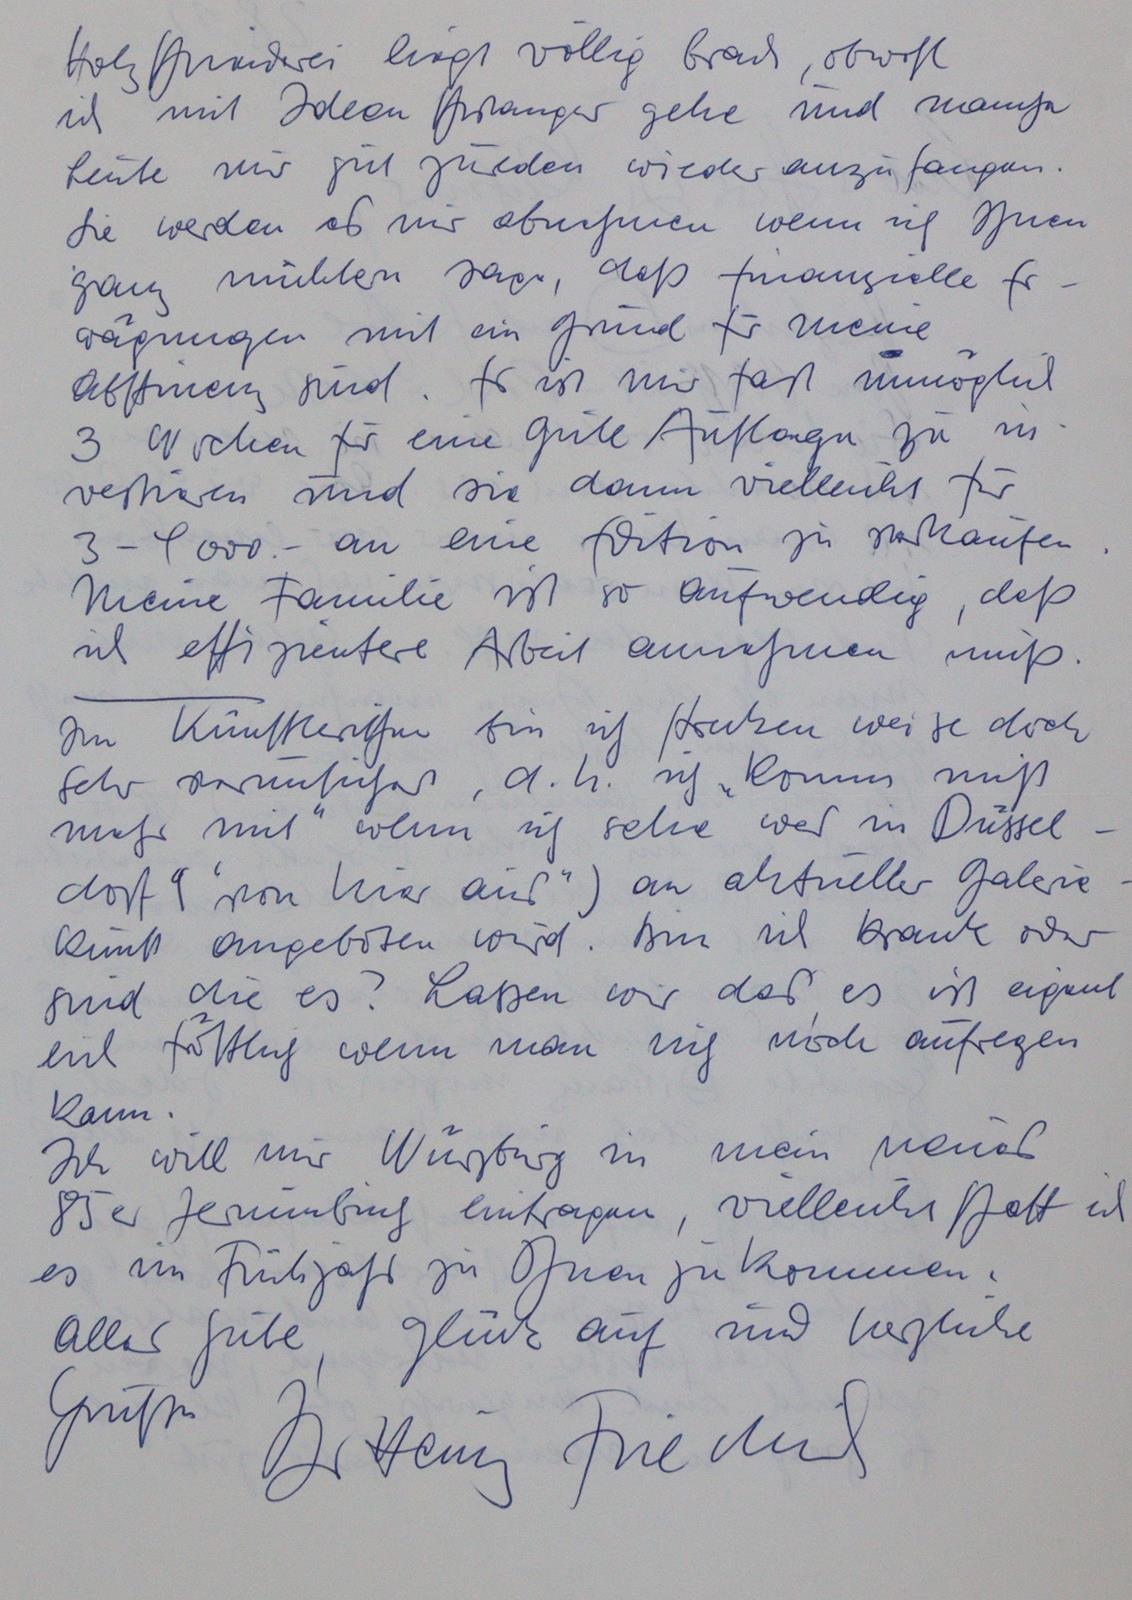 Holzschneiderei liegt völlig brach, obwohl
ich mit Ideen schwanger gehe und manche
Leute mir gut zureden wieder anzufangen.
Sie werden es mir abnehmen wenn ich Ihnen
ganz nüchtern sage, daß finanzielle Er-
wägungen mit ein Grund für meine
Abstinenz sind. Es ist mir fast unmöglich
3 Wochen für eine gute Auflage zu in-
vestieren und sie dann vielleicht für
3-4000.- an eine Edition zu verkaufen.
Meine Familie ist so aufwendig, daß
ich effizientere Arbeit annehmen muß.
Im Künstlerischen bin ich streckenweise doch
sehr verunsichert, d.h. ich „komme nicht
mehr mit" wenn ich sehe was in Düssel-
dorf ("von hier aus") an aktueller Galerie-
kunst angeboten wird. Bin ich krank oder
sind die es? Lassen wir das, es ist eigent
lich tröstlich wenn man sich noch aufregen
kann.
Ich will mir Würzburg in mein neues
85er Terminbuch eintragen, vielleicht schaff ich
es im Frühjahr zu Ihnen zu kommen.
Alles Gute, Glück auf und herzliche
Grüsse Ihr Heinz Friedrich